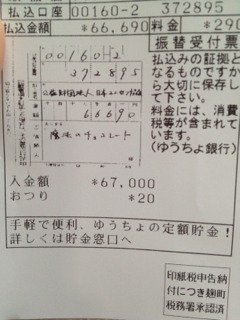 払込口座 00160-2 372895
払込金額 *66,690 料金 *290
00160-2
372895
66690
魔法のチョコレート
振替受付票
払込みの証拠と
なるものですか
ら大切に保存し
て下さい。
料金には、消費
税等が含まれて
います。
(ゆうちょ銀行)
入金額 *67,000
おつり *20
手軽で便利、ゆうちょの定額貯金!
詳しくは貯金窓口へ
印紙税申告納
付につき麹町
税務署承認済